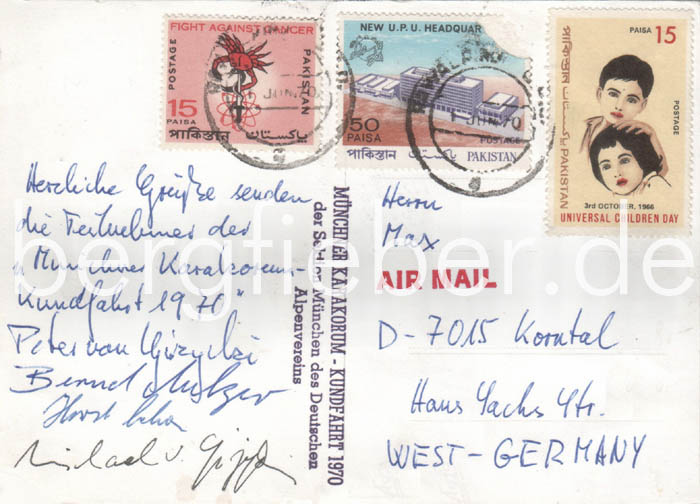 FIGHT AGAINST CANCER
POSTAGE
PAKISTAN
15
PAISA
পাকিস্তান
پاکستان
NEW U.P.U. HEADQUAR
50
PAISA
POSTAGE
পাকিস্তান
پاکستان
PAKISTAN
JUN.70
RAWALPIND
JUN.70
PAISA 15
পাকিস্তান
پاکستان
PAKISTAN
POSTAGE
3rd OCTOBER, 1966
UNIVERSAL CHILDREN DAY
Herzliche Grüße senden
die Teilnehmer der
"Münchner Karakorum-
Kundfahrt 1970"
Peter von Gizycki
Bernd
Horst
Michael v. Gizycki
MÜNCHNER KARAKORUM - KUNDFAHRT 1970
der Sektion München des Deutschen
Alpenvereins
Herrn
Max
AIR MAIL
D-7015 Korntal
Hans Sachs Str.
WEST-GERMANY
bergfieber.de